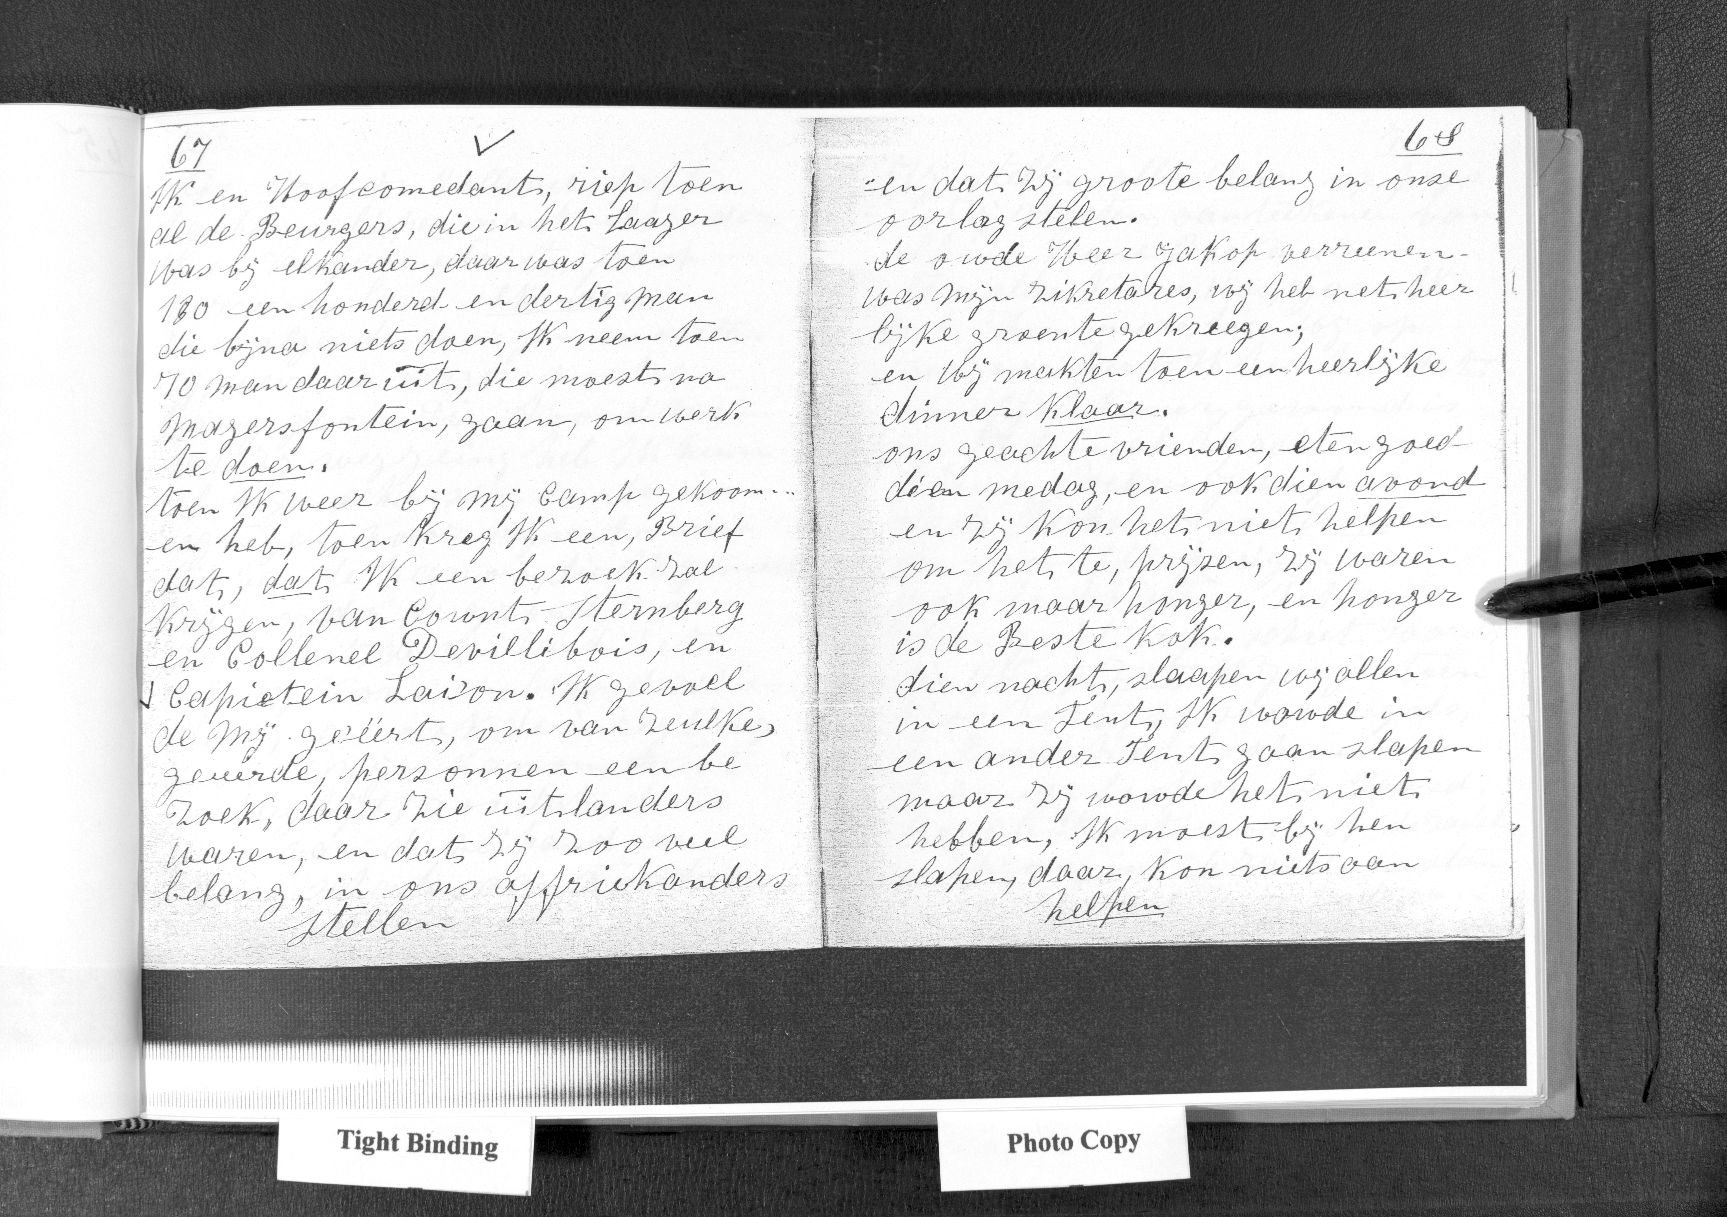 67
Ik en Hoofcomedant, riep toen
al de Beurgers, die in het Laager
was bij elkander, daar was toen
130 een honderd en dertig man
die bijna niets doen, Ik neem toen
70 man daar uit, die moest na
Magersfontein, gaan, om werk
te doen.
toen Ik weer bij mij Camp gekoom...
en heb, toen Kreg Ik een, Brief
dat, dat Ik een bezoek zal
Krijgen, van Cownt Sternberg
en Collenel Devillibois, en
Capictein Laison. Ik gevoel
de mij geëert, om van Zeulke,
geeerde, personnen een be
zoek, daar zie uitlanders
waren, en dat zij zoo veel
belang, in ons affriekanders
stellen
68
en dat zij groote belang in onse
oorlog stelen.
de owde Heer Jakop verreenen-
was mijn zikretares, wij heb net heer
lijke groente gekreegen;
en wij makten toen een heerlijke
dinner Klaar.
ons geachte vrienden, eten goed
dien medag, en ook dien avond
en zij Kon het niet helpen
om het te, prijsen, zij waren
ook maar honger, en honger
is de Beste Kok.
dien nacht, slaapen wij allen
in een Tent, Ik wowde in
een ander Tent gaan slapen
maar zij wowde het niet
hebben, Ik moest bij hen
slapen, daar, Kon niets aan
helpen
Tight Binding
Photo Copy